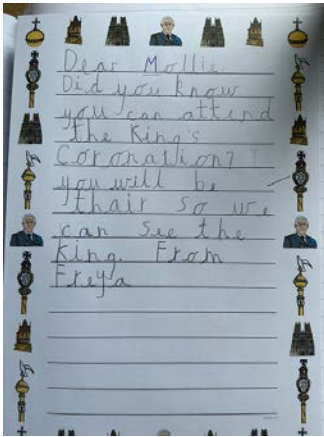 Dear Mollie.
Did you know
you can attend
the King's
Coronation?
you will be
thair so we
can see the
King. From
Freya